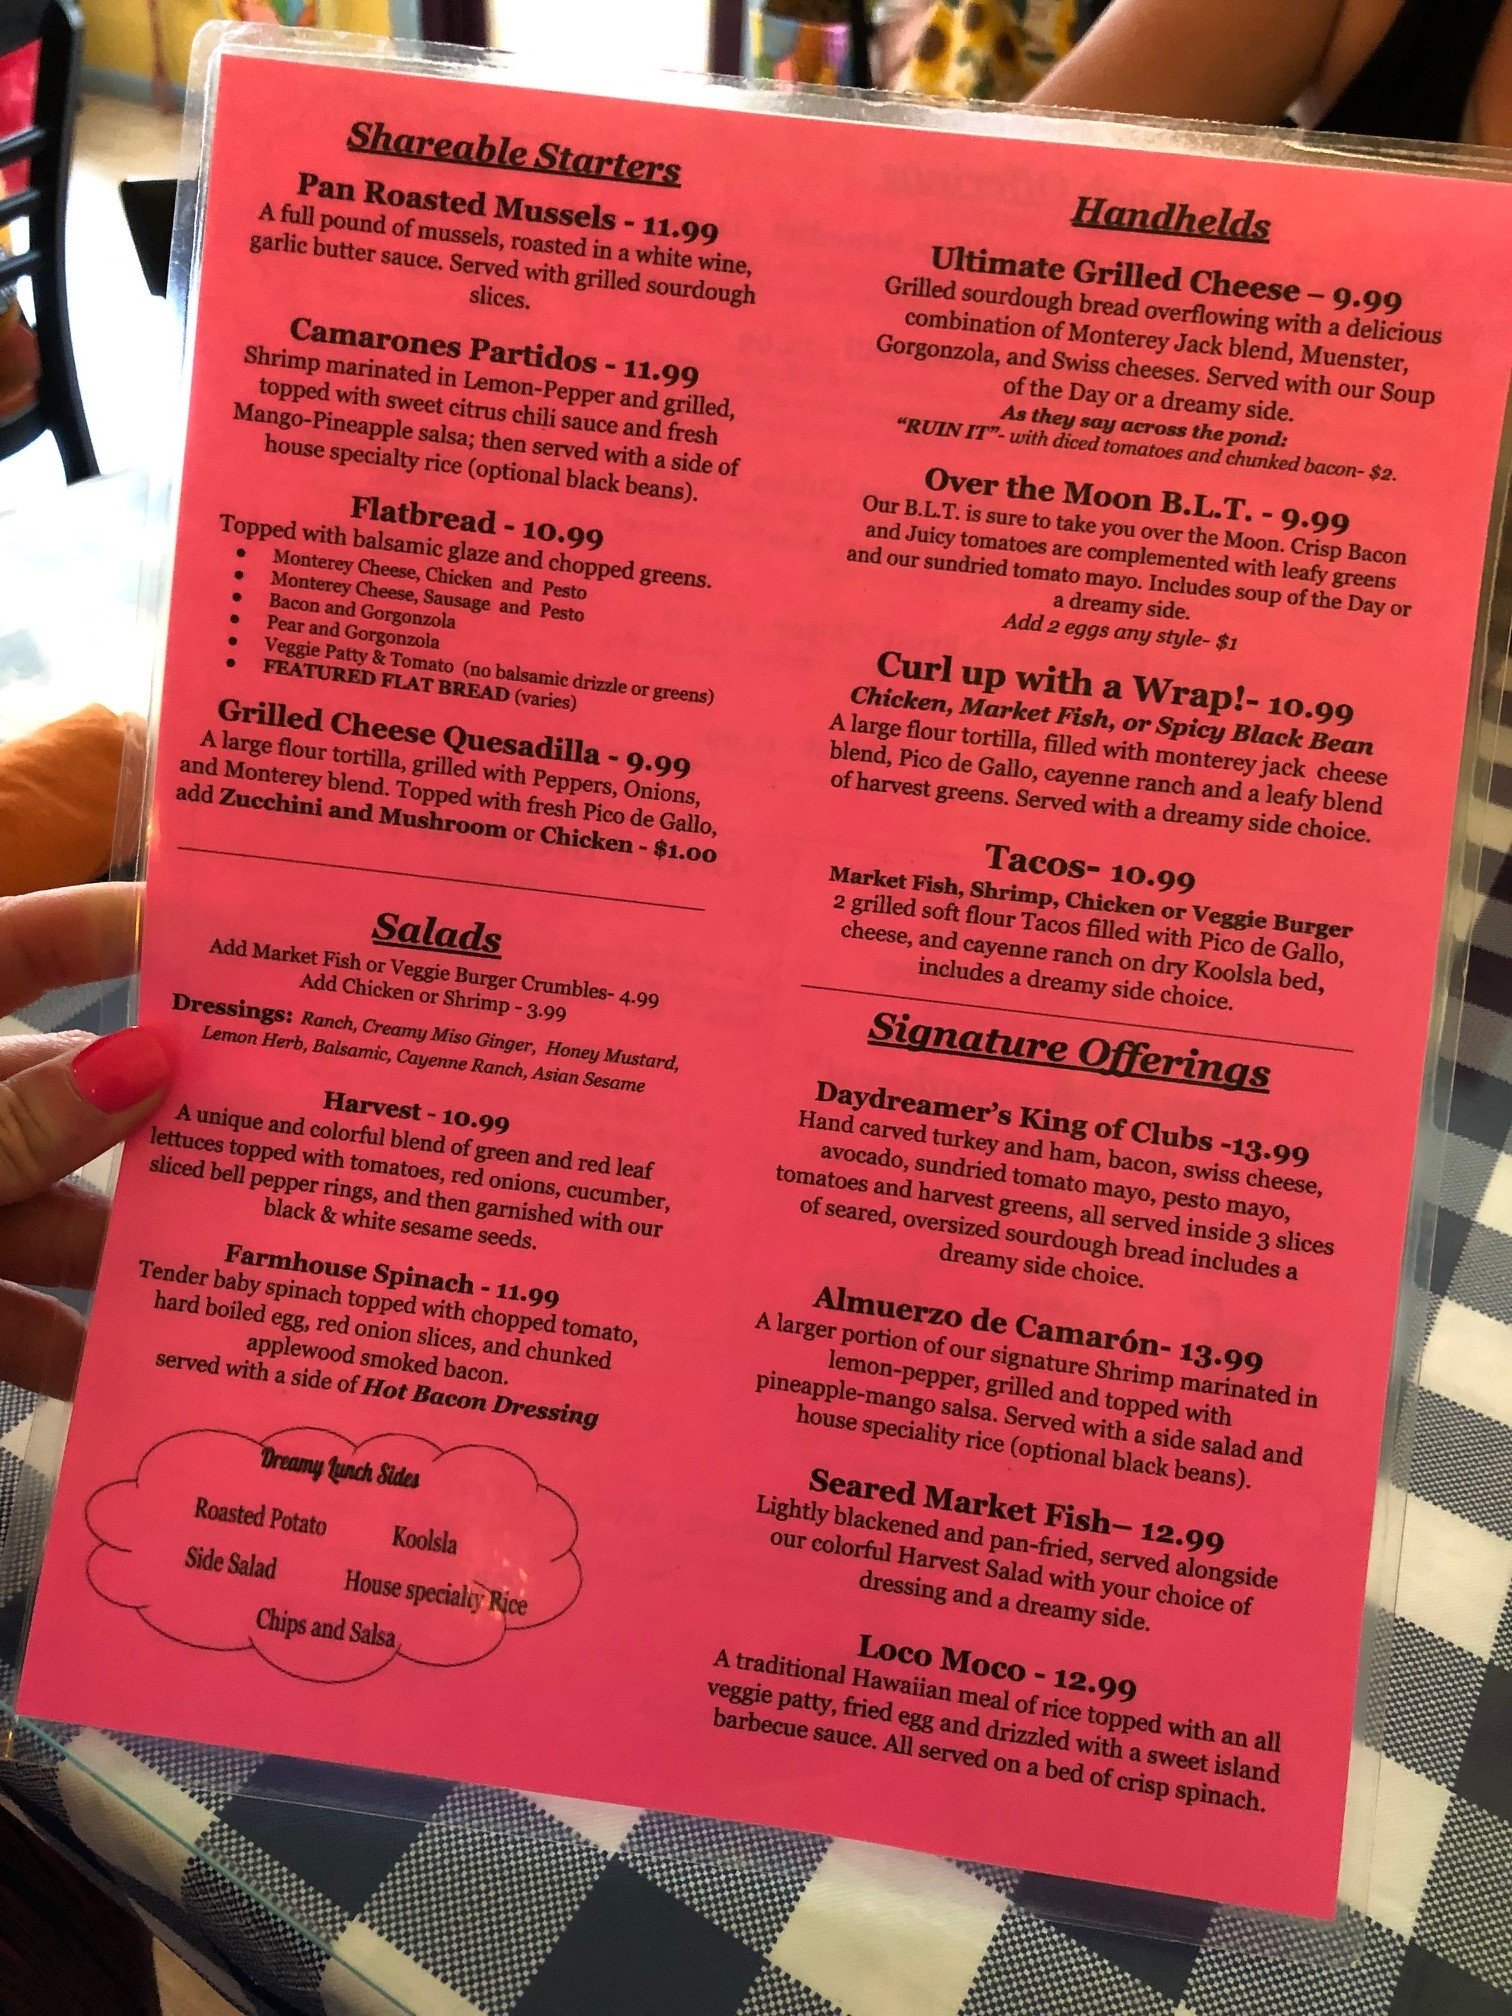 Shareable Starters
Pan Roasted Mussels - 11.99
A full pound of mussels, roasted in a white wine,
garlic butter sauce. Served with grilled sourdough
slices.
Camarones Partidos - 11.99
Shrimp marinated in Lemon-Pepper and grilled,
topped with sweet citrus chili sauce and fresh
Mango-Pineapple salsa; then served with a side of
house specialty rice (optional black beans).
Flatbread - 10.99
Topped with balsamic glaze and chopped greens.
• Monterey Cheese, Chicken and Pesto
• Monterey Cheese, Sausage and Pesto
• Bacon and Gorgonzola
• Pear and Gorgonzola
• Veggie Patty & Tomato (no balsamic drizzle or greens)
• FEATURED FLAT BREAD (varies)
Grilled Cheese Quesadilla - 9.99
A large flour tortilla, grilled with Peppers, Onions,
and Monterey blend. Topped with fresh Pico de Gallo,
add Zucchini and Mushroom or Chicken - $1.00
Salads
Add Market Fish or Veggie Burger Crumbles- 4.99
Add Chicken or Shrimp - 3.99
Dressings: Ranch, Creamy Miso Ginger, Honey Mustard,
Lemon Herb, Balsamic, Cayenne Ranch, Asian Sesame
Harvest - 10.99
A unique and colorful blend of green and red leaf
lettuces topped with tomatoes, red onions, cucumber,
sliced bell pepper rings, and then garnished with our
black & white sesame seeds.
Farmhouse Spinach - 11.99
Tender baby spinach topped with chopped tomato,
hard boiled egg, red onion slices, and chunked
applewood smoked bacon.
served with a side of Hot Bacon Dressing
Dreamy Lunch Sides
Roasted Potato
Koolsla
Side Salad
House specialty Rice
Chips and Salsa
Handhelds
Ultimate Grilled Cheese – 9.99
Grilled sourdough bread overflowing with a delicious
combination of Monterey Jack blend, Muenster,
Gorgonzola, and Swiss cheeses. Served with our Soup
of the Day or a dreamy side.
As they say across the pond:
“RUIN IT”- with diced tomatoes and chunked bacon- $2.
Over the Moon B.L.T. - 9.99
Our B.L.T. is sure to take you over the Moon. Crisp Bacon
and Juicy tomatoes are complemented with leafy greens
and our sundried tomato mayo. Includes soup of the Day or
a dreamy side.
Add 2 eggs any style- $1
Curl up with a Wrap!- 10.99
Chicken, Market Fish, or Spicy Black Bean
A large flour tortilla, filled with monterey jack cheese
blend, Pico de Gallo, cayenne ranch and a leafy blend
of harvest greens. Served with a dreamy side choice.
Tacos- 10.99
Market Fish, Shrimp, Chicken or Veggie Burger
2 grilled soft flour Tacos filled with Pico de Gallo,
cheese, and cayenne ranch on dry Koolsla bed,
includes a dreamy side choice.
Signature Offerings
Daydreamer’s King of Clubs -13.99
Hand carved turkey and ham, bacon, swiss cheese,
avocado, sundried tomato mayo, pesto mayo,
tomatoes and harvest greens, all served inside 3 slices
of seared, oversized sourdough bread includes a
dreamy side choice.
Almuerzo de Camarón- 13.99
A larger portion of our signature Shrimp marinated in
lemon-pepper, grilled and topped with
pineapple-mango salsa. Served with a side salad and
house speciality rice (optional black beans).
Seared Market Fish– 12.99
Lightly blackened and pan-fried, served alongside
our colorful Harvest Salad with your choice of
dressing and a dreamy side.
Loco Moco - 12.99
A traditional Hawaiian meal of rice topped with an all
veggie patty, fried egg and drizzled with a sweet island
barbecue sauce. All served on a bed of crisp spinach.